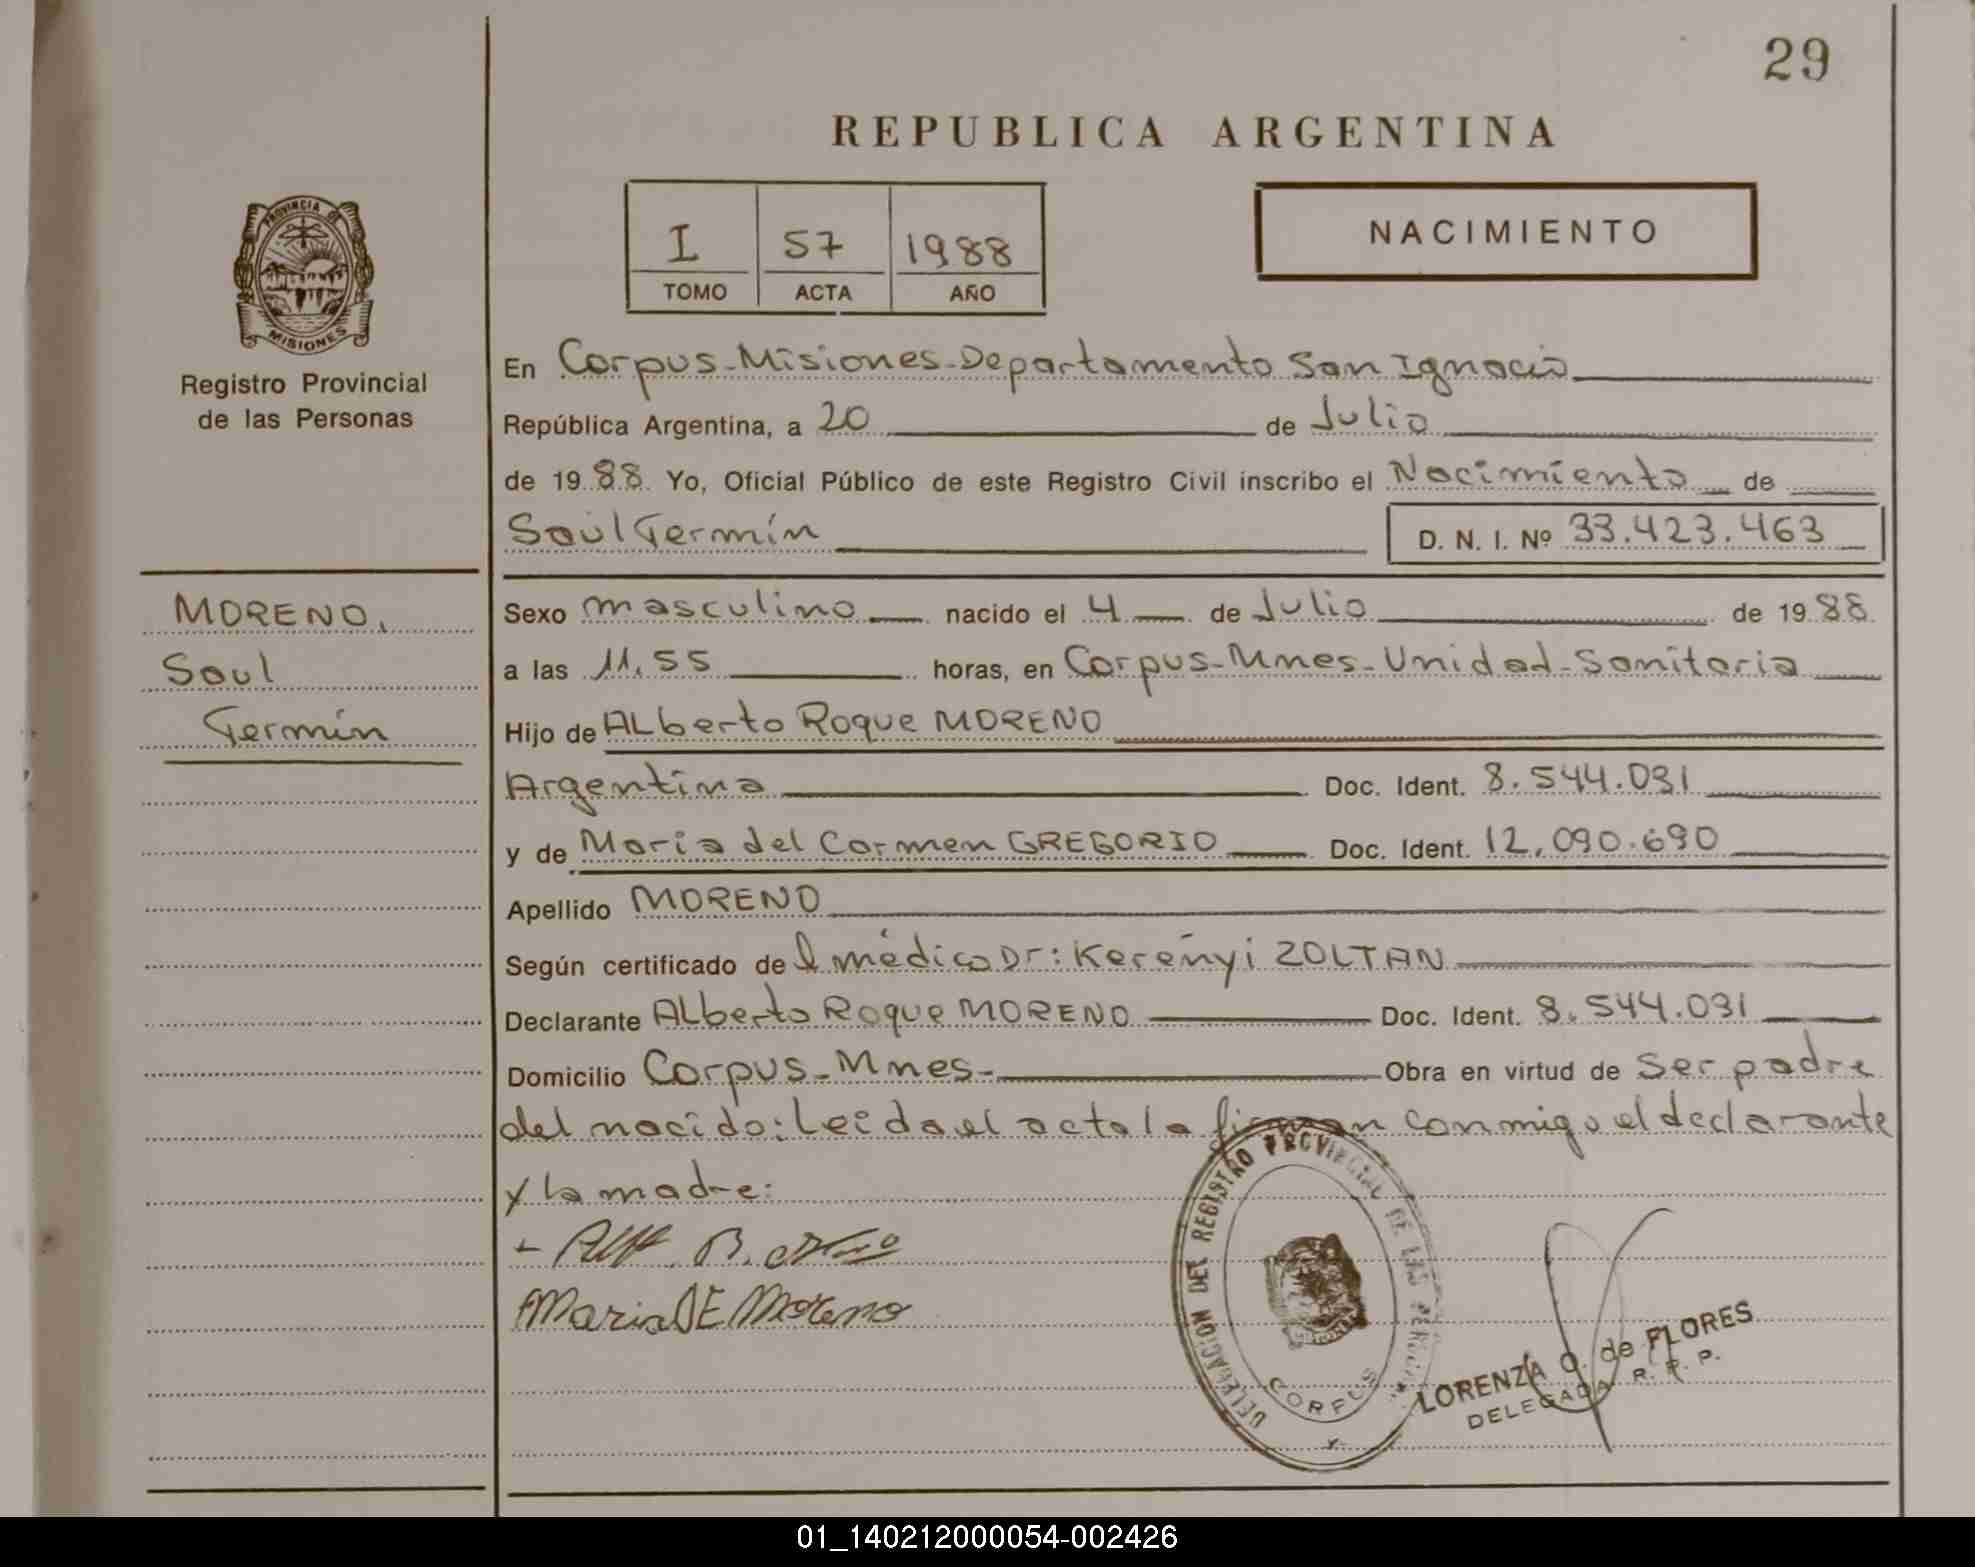 29
REPUBLICA ARGENTINA
I 57 1988
TOMO ACTA AÑO
NACIMIENTO
PROVINCIA DE
MISIONES
Registro Provincial
de las Personas
En Corpus-Misiones-Departamento San Ignacio
República Argentina, a 20 de Julio
de 1988. Yo, Oficial Público de este Registro Civil inscribo el Nacimiento de
Saúl Fermín D. N. I. Nº 33.423.463
MORENO,
Saul
Fermín
Sexo masculino nacido el 4 de Julio de 1988
a las 11,55 horas, en Corpus-Mnes-Unidad-Sanitaria
Hijo de ALberto Roque MORENO
Argentina Doc. Ident. 8.544.031
y de Maria del Carmen GREGORIO Doc. Ident. 12.090.690
Apellido MORENO
Según certificado del médico Dr: Kerényi ZOLTAN
Declarante ALberto Roque MORENO Doc. Ident. 8.544.031
Domicilio Corpus-Mnes- Obra en virtud de ser padre
del nacido: Leida el acta la firman conmigo el declarante
y la madre:
Maria DE Moreno
DELEGACION DEL REGISTRO PROVINCIAL DE LAS PERSONAS
CORPUS
LORENZA O. de FLORES
DELEGADA R. P. P.
01_140212000054-002426